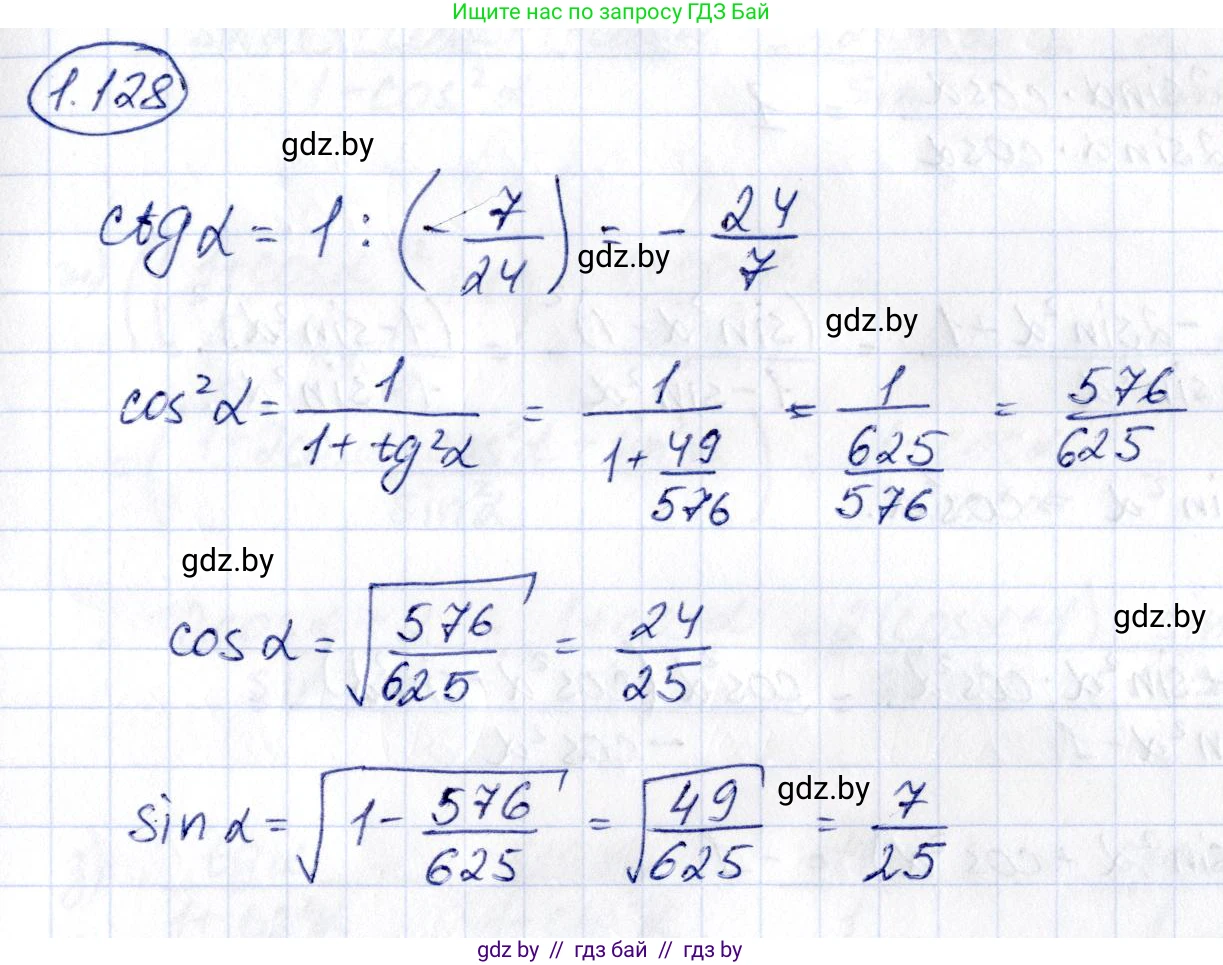 Ищите нас по запросу ГДЗ Бай
1.128
gdz.by
ctg α = 1 : (- 7/24) = - 24/7
gdz.by
gdz.by
cos²α = 1/(1 + tg²α) = 1/(1 + 49/576) = 1/(625/576) = 576/625
gdz.by
cos α = √(576/625) = 24/25
gdz.by
sin α = √(1 - 576/625) = √(49/625) = 7/25
gdz.by
gdz by // гдз бай // гдз by